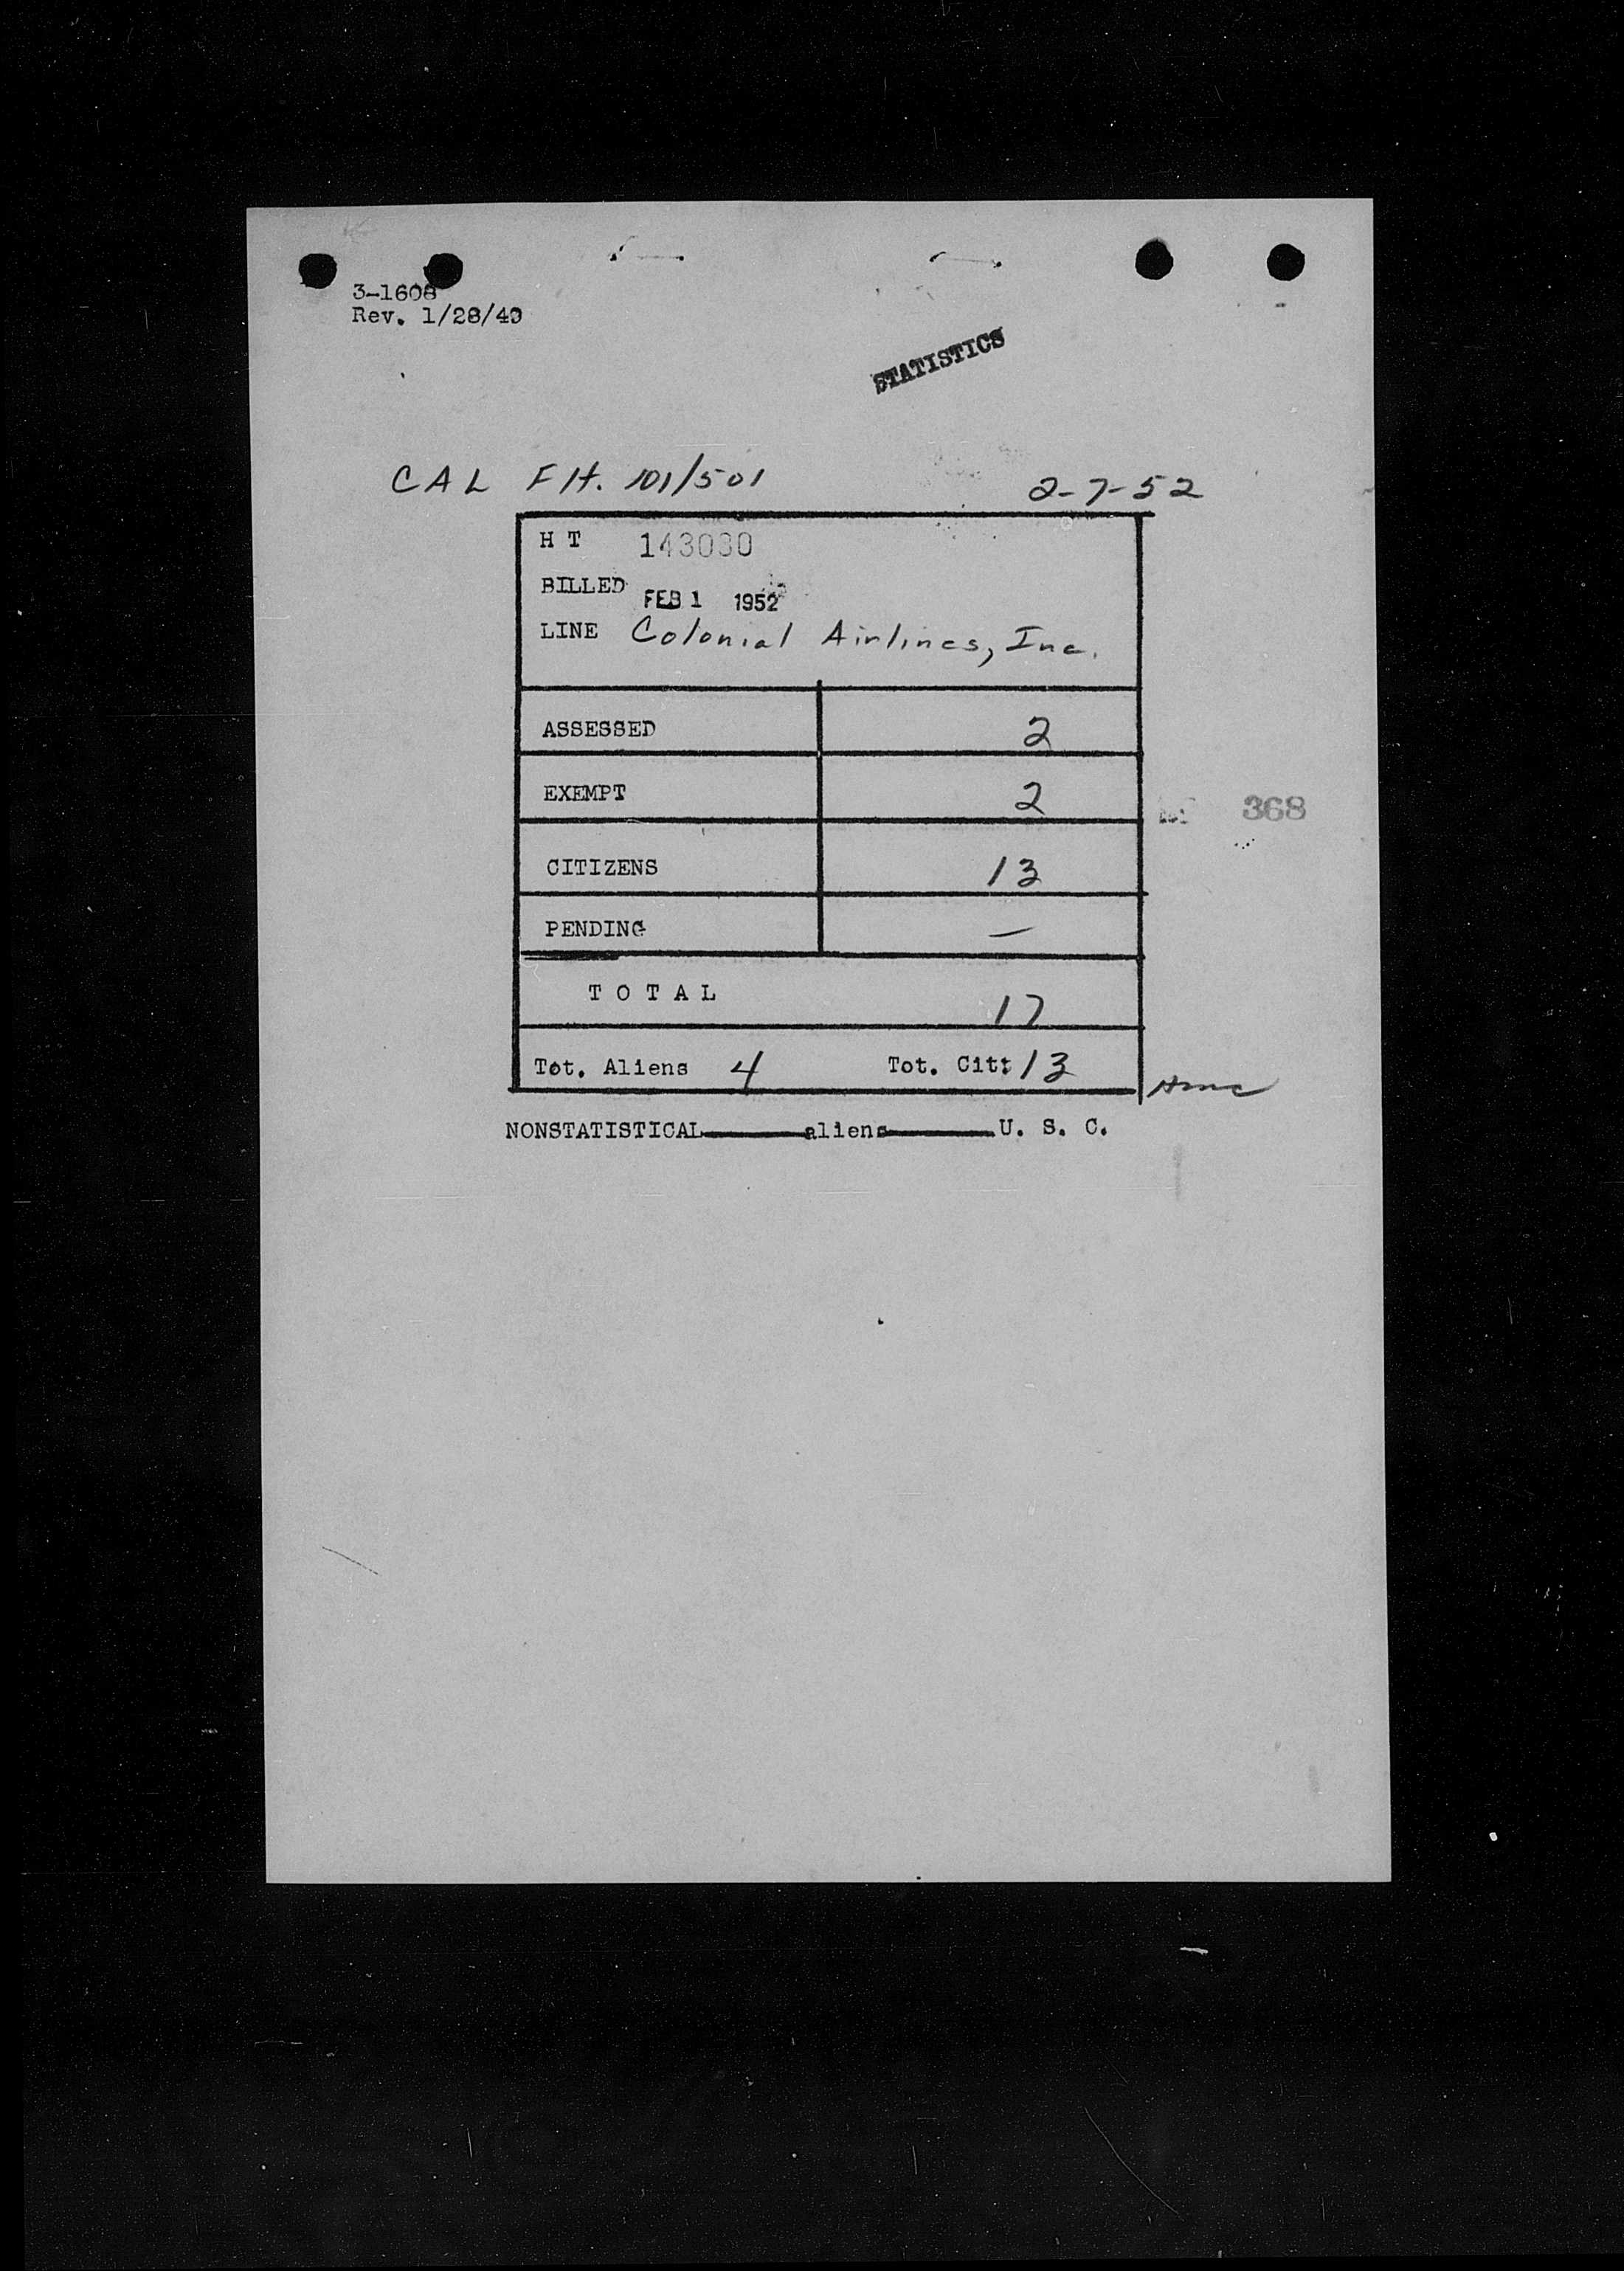 3-1608
Rev. 1/28/49
STATISTICS
CAL Flt. 101/501 2-7-52
H T 143030
BILLED FEB 1 1952
LINE Colonial Airlines, Inc.
ASSESSED 2
EXEMPT 2
368
CITIZENS 13
PENDING —
T O T A L 17
Tot. Aliens 4 Tot. Cit: 13
NONSTATISTICAL______aliens______U. S. C.